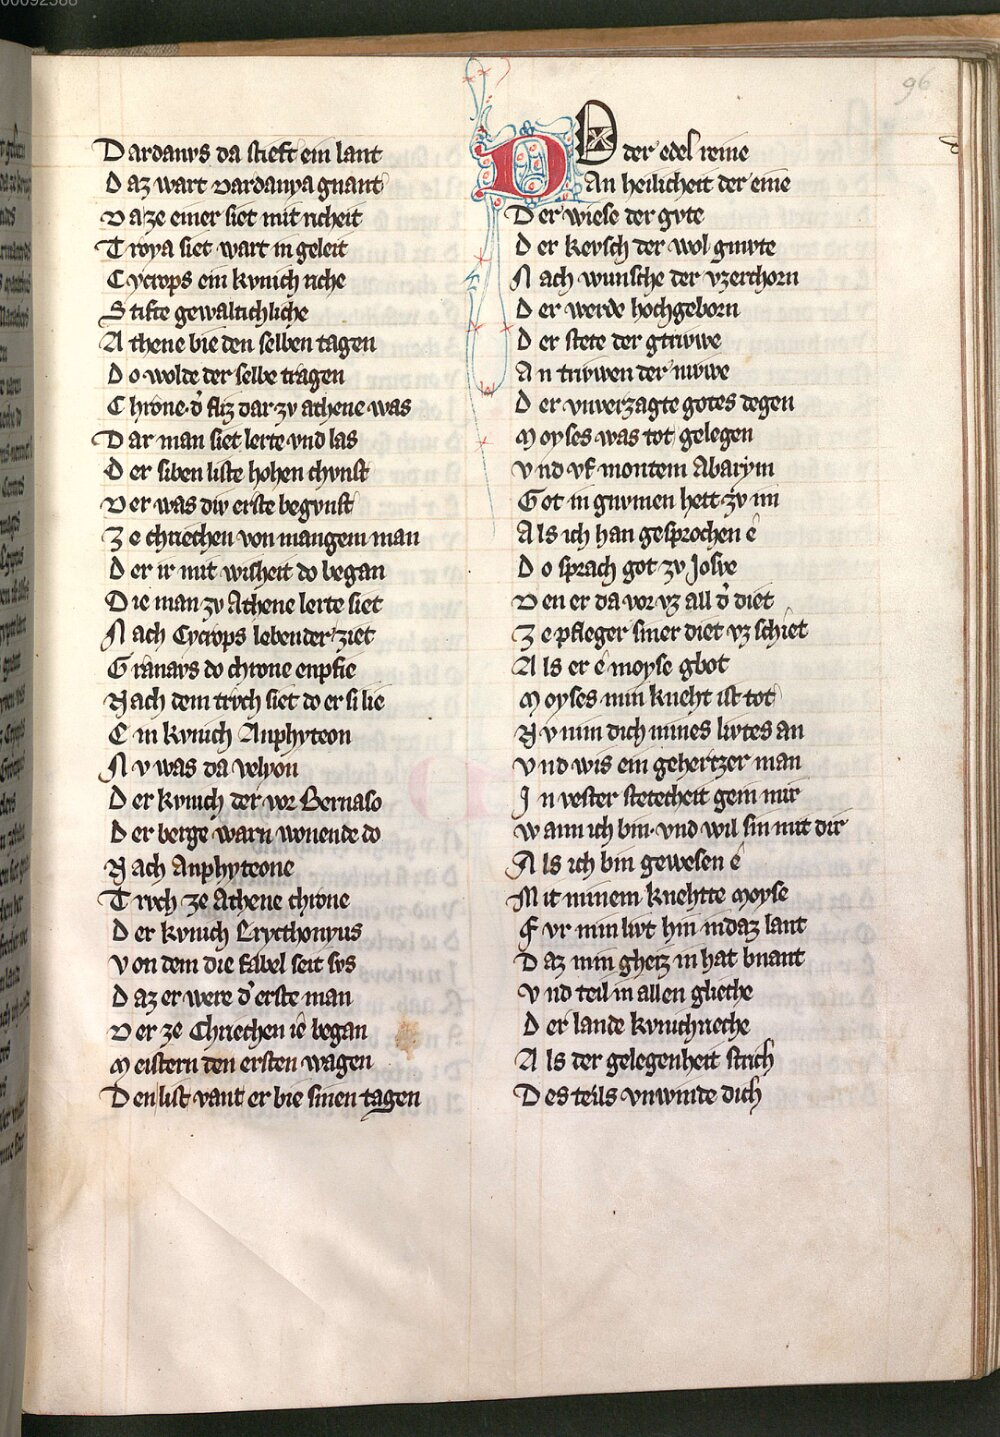 96
Dardanvs da stieft ein lant
Daz wart Dardanya gnant
Daze einer siet mit richeit
Troya siet wart in geleit
Cycrops ein kvnich riche
Stifte gewaltichliche
Athene bie den selben tagen
Do wolde der selbe tragen
Chrone. d̓ fliz dar zv athene was
Dar man siet lerte vnd las
Der siben liste hohen chvnst
Der was div erste begvnst
Ze chriechen von mangem man
Der ir mit wisheit do began
Die man zv Athene lerte siet
Nach Cycrops lebender ziet
Granavs do chrone enpfie
Nach dem troch siet do er si lie
Ein kvnich Anphyteon
Nv was da velyon
Der kvnich der vor Bernaso
Der berge warn wonende do
Nach Anphyteone
Troch ze Athene chrone
Der kvnich Erycthonyus
Von dem die fabel seit svs
Daz er were d̓ erste man
Der ze Chriechen ie began
Meistern den ersten wagen
Den list vant er bie sinen tagen
Do der edel reine
An heilicheit der eine
Der wiese der gvte
Der kevsch der wol gmvte
Nach wunsche der vzerchorn
Der werde hochgeborn
Der stete der gtrivwe
An trivwen der nivwe
Der vnverzagte gotes degen
Moyses was tot gelegen
Vnd vf montem Abarym
Got in grvmen hett zv im
Als ich han gesprochen ê
Do sprach got zv Josve
Den er da vor vz all d̓ diet
Ze pfleger siner diet vz schiet
Als er ê moyse gbot
Moyses min kneht ist tot
Nv nim dich mines livtes an
Vnd wis ein gehertzer man
In vester stetecheit gein mir
Wann ich bin. vnd wil sin mit dir
Als ich bin gewesen ê
Mit minem knehtte moyse
Fvr min livt hin in daz lant
Daz min gheiz in hat bnant
Vnd teil in allen gliehe
Der lande kvnichrieche
Als der gelegenheit strich
Des teils vnwinde dich